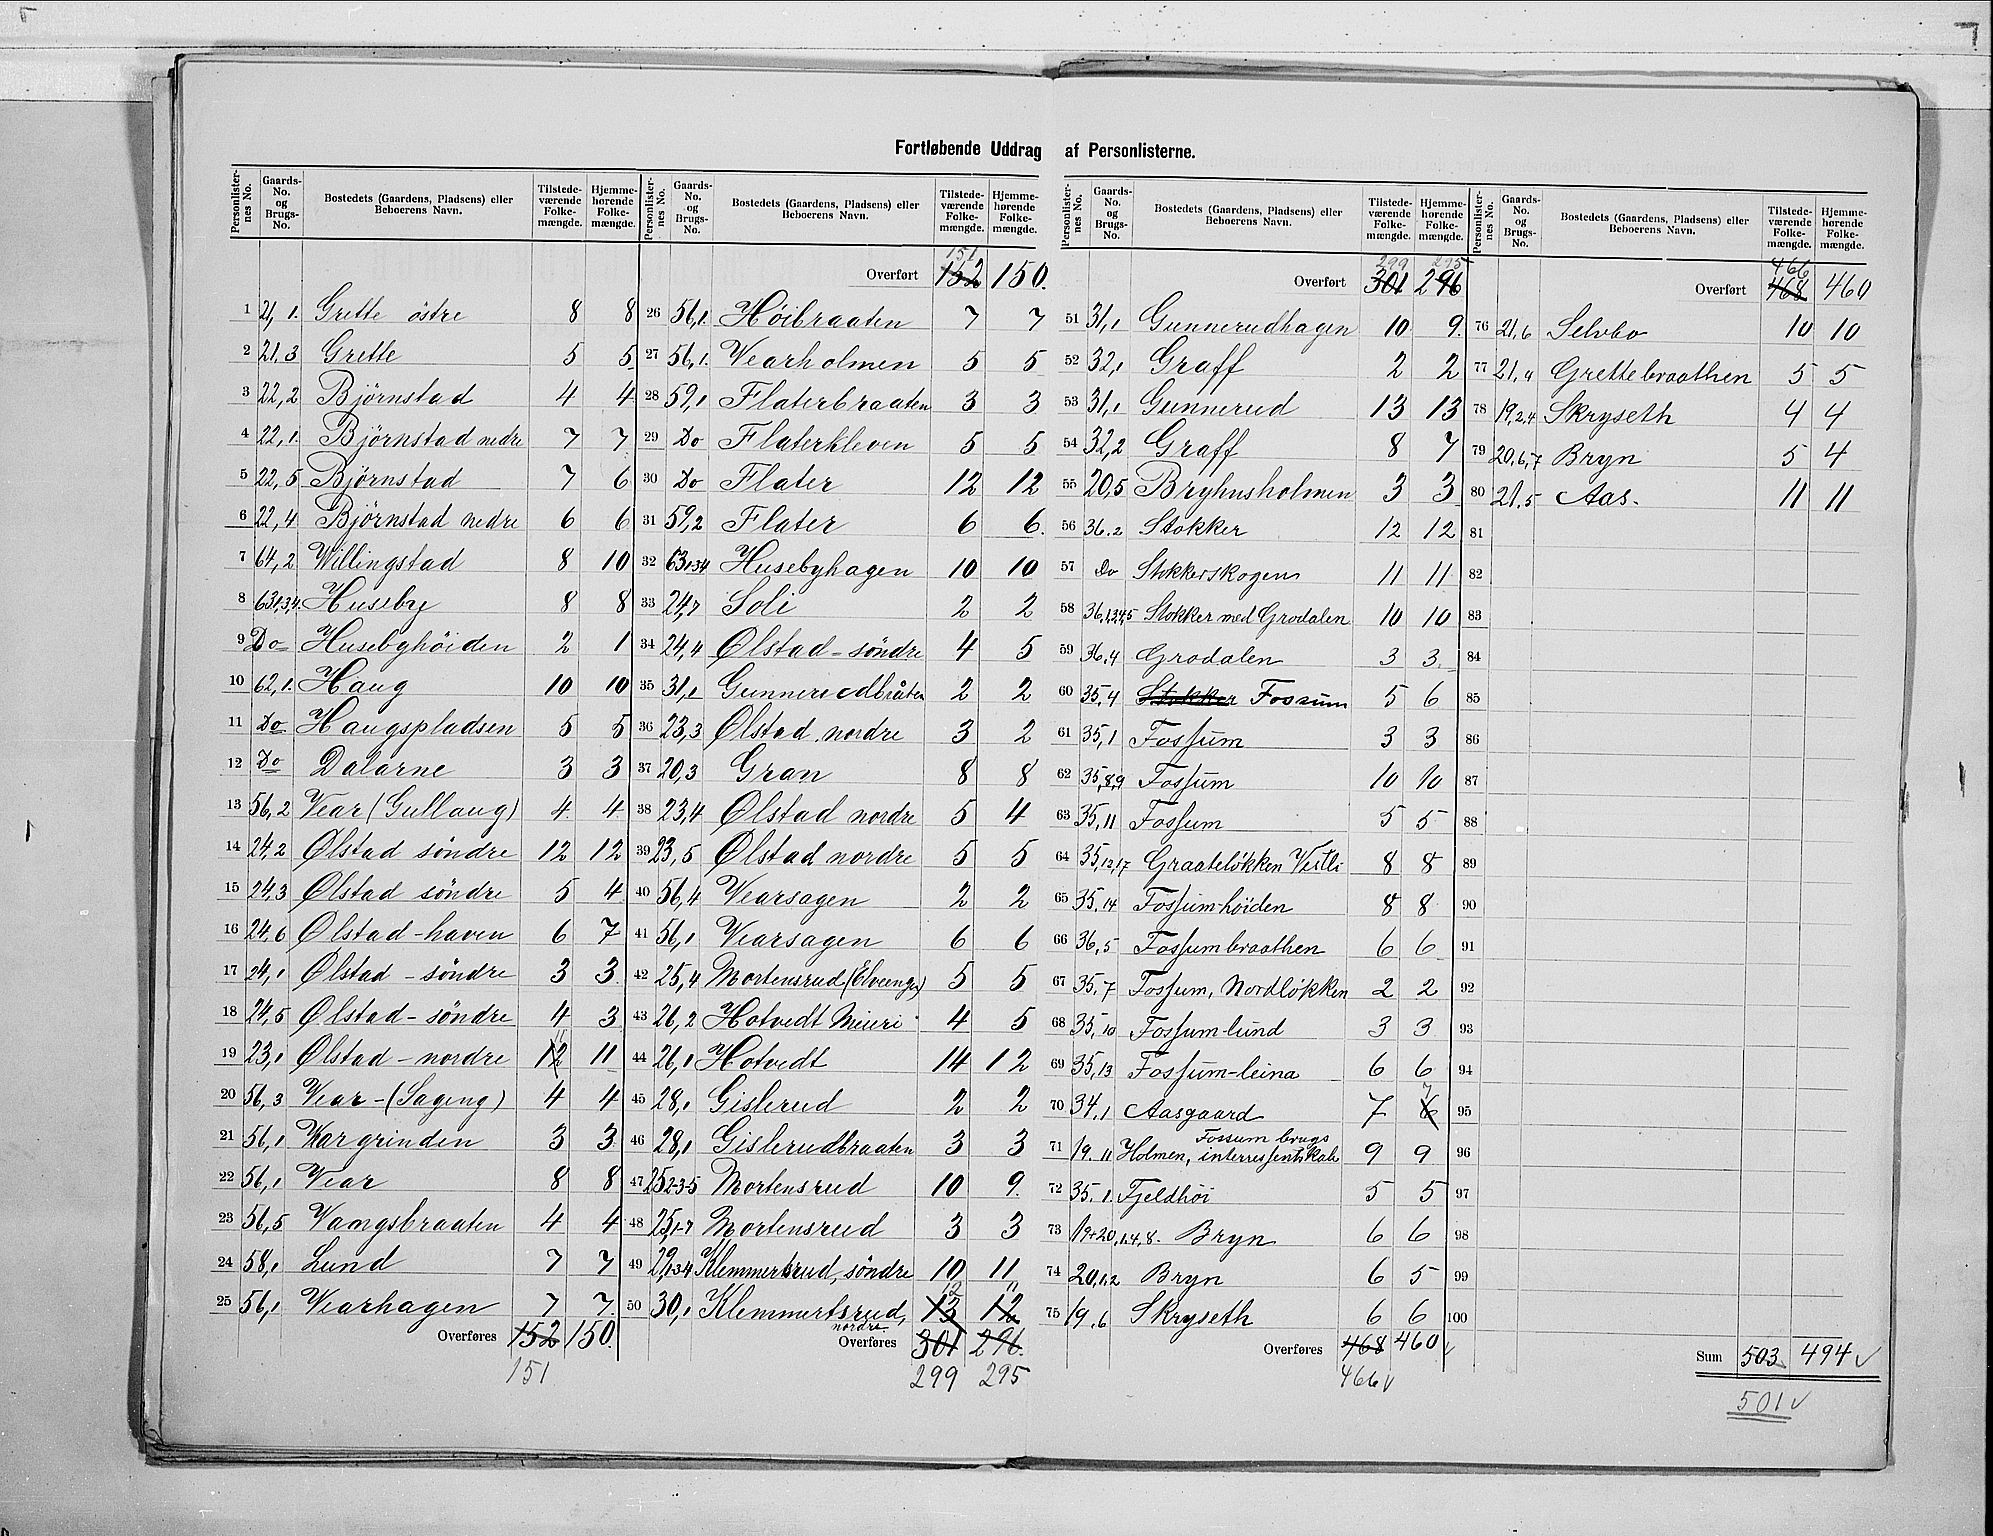 Fortløbende Uddrag af Personlisterne.
Personlister-nes No. Gaards-No. og Brugs-No. Bostedets (Gaardens, Pladsens) eller Beboerens Navn. Tilstede-værende Folke-mængde. Hjemme-hørende Folke-mængde.
1 21,1. Grette östre 8 8
2 21.3 Grette 5 5
3 22,2 Bjørnstad 4 4
4 22,1. Bjørnstad nedre 7 7
5 22,5 Bjørnstad 7 6
6 22,4 Bjørnstad nedre 6 6
7 64,2 Willingstad 8 10
8 63,1,3,4. Huseby 8 8
9 Do Husebyhöiden 2 1
10 62,1. Haug 10 10
11 Do Haugspladsen 5 5
12 Do Dalarne 3 3
13 56,2 Vear (Gullaug) 4 4
14 24,2 Ølstad söndre 12 12
15 24,3 Ølstad söndre 5 4
16 24,6 Ølstad-haven 6 7
17 24,1 Ølstad - söndre 3 3
18 24,5 Ølstad - söndre 4 3
19 23,1 Ølstad - nordre 12 11 11
20 56,3 Vear - (Sageng) 4 4
21 56,1 Vargrinden 3 3
22 56,1 Vear 8 8
23 56,5 Vangsbraaten 4 4
24 58,1 Lund 7 7
25 56,1 Vearhagen 7 7.
Overføres 152 150.
151
Personlister-nes No. Gaards-No. og Brugs-No. Bostedets (Gaardens, Pladsens) eller Beboerens Navn. Tilstede-værende Folke-mængde. Hjemme-hørende Folke-mængde.
151
Overført 152 150.
26 56,1. Høibraaten 7 7
27 56,1. Vearholmen 5 5
28 59,1 Flaterbraaten 3 3
29 Do Flaterkleven 5 5
30 Do Flater 12 12
31 59,2 Flater 6 6.
32 63,1,3,4 Husebyhagen 10 10
33 24,7 Soli 2 2
34 24,4 Ølstad - söndre 4 5
35 31,1 Gunnerudbråten 2 2
36 23,3 Ølstad nordre 3 2
37 20,3 Gran 8 8
38 23,4 Ølstad nordre 5 4
39 23,5 Ølstad nordre 5 5
40 56,4 Vearsagen 2 2
41 56,1 Vearsagen 6 6
42 25,4 Mortensrud (Elvenga) 5 5
43 26,2 Hotvedt Meieri 4 5
44 26,1 Hotvedt 14 12
45 28,1 Gislerud 2 2
46 28,1 Gislerudbraaten 3 3
47 25,2-3-5 Mortensrud 10 9.
48 25,1-7 Mortensrud 3 3
49 29,1-3-4 Klemmertsrud, söndre 10 11
50 30,1 Klemmertsrud, nordre. 13 12 12 11
Overføres 301 296.
299 295
Personlister-nes No. Gaards-No. og Brugs-No. Bostedets (Gaardens, Pladsens) eller Beboerens Navn. Tilstede-værende Folke-mængde. Hjemme-hørende Folke-mængde.
299 295
Overført 301 296
51 31,1 Gunnerudhagen 10 9.
52 32,1 Graff 2 2
53 31,1 Gunnerud 13 13
54 32,2 Graff 8 7
55 20,5 Bryhnsholmen 3 3
56 36.2 Stokker 12 12
57 Do Stokkerskogen 11 11
58 36,1,3,4,5 Stokker med Grodalen 10 10
59 36.4 Grodalen 3 3.
60 35,4 Stokker Fossum 5 6
61 35,1 Fossum 3 3
62 35,8,9 Fossum 10 10
63 35,11 Fossum 5 5
64 35,12,17 Graateløkken Vestli 8 8
65 35,14 Fossum-höiden 8 8
66 36,5 Fossumbraathen 6 6
67 35,7 Fossum, Nordløkken 2 2
68 35,10 Fossum-lund 3 3
69 35,13 Fossum-leina 6 6
70 34,1 Aasgaard 7 6 7
71 19.11 Holmen, Fossum brugs interressentskab 9 9
72 35.1. Fjeldhöi 5 5
73 19+20,1.4,8. Bryn 6 6
74 20,1.2 Bryn 6 5
75 19.6 Skryseth 6 6
Overføres 468 460 v
466 v
Personlister-nes No. Gaards-No. og Brugs-No. Bostedets (Gaardens, Pladsens) eller Beboerens Navn. Tilstede-værende Folke-mængde. Hjemme-hørende Folke-mængde.
466
Overført 468 460
76 21,6 Selvbo 10 10
77 21,4 Grettebraathen 5 5
78 19,2,4 Skryseth 4 4
79 20,6,7 Bryn 5 4
80 21.5 Aas. 11 11
81
82
83
84
85
86
87
88
89
90
91
92
93
94
95
96
97
98
99
100
Sum 503 494 v
501 v